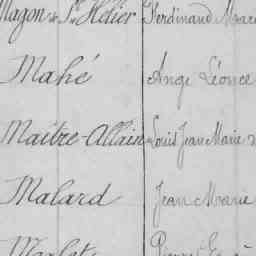 Magon de St Hélier Ferdinand Marie
Mahé Ange Léonce
Maître-Allain Louis Jean Marie
Malard Jean Marie